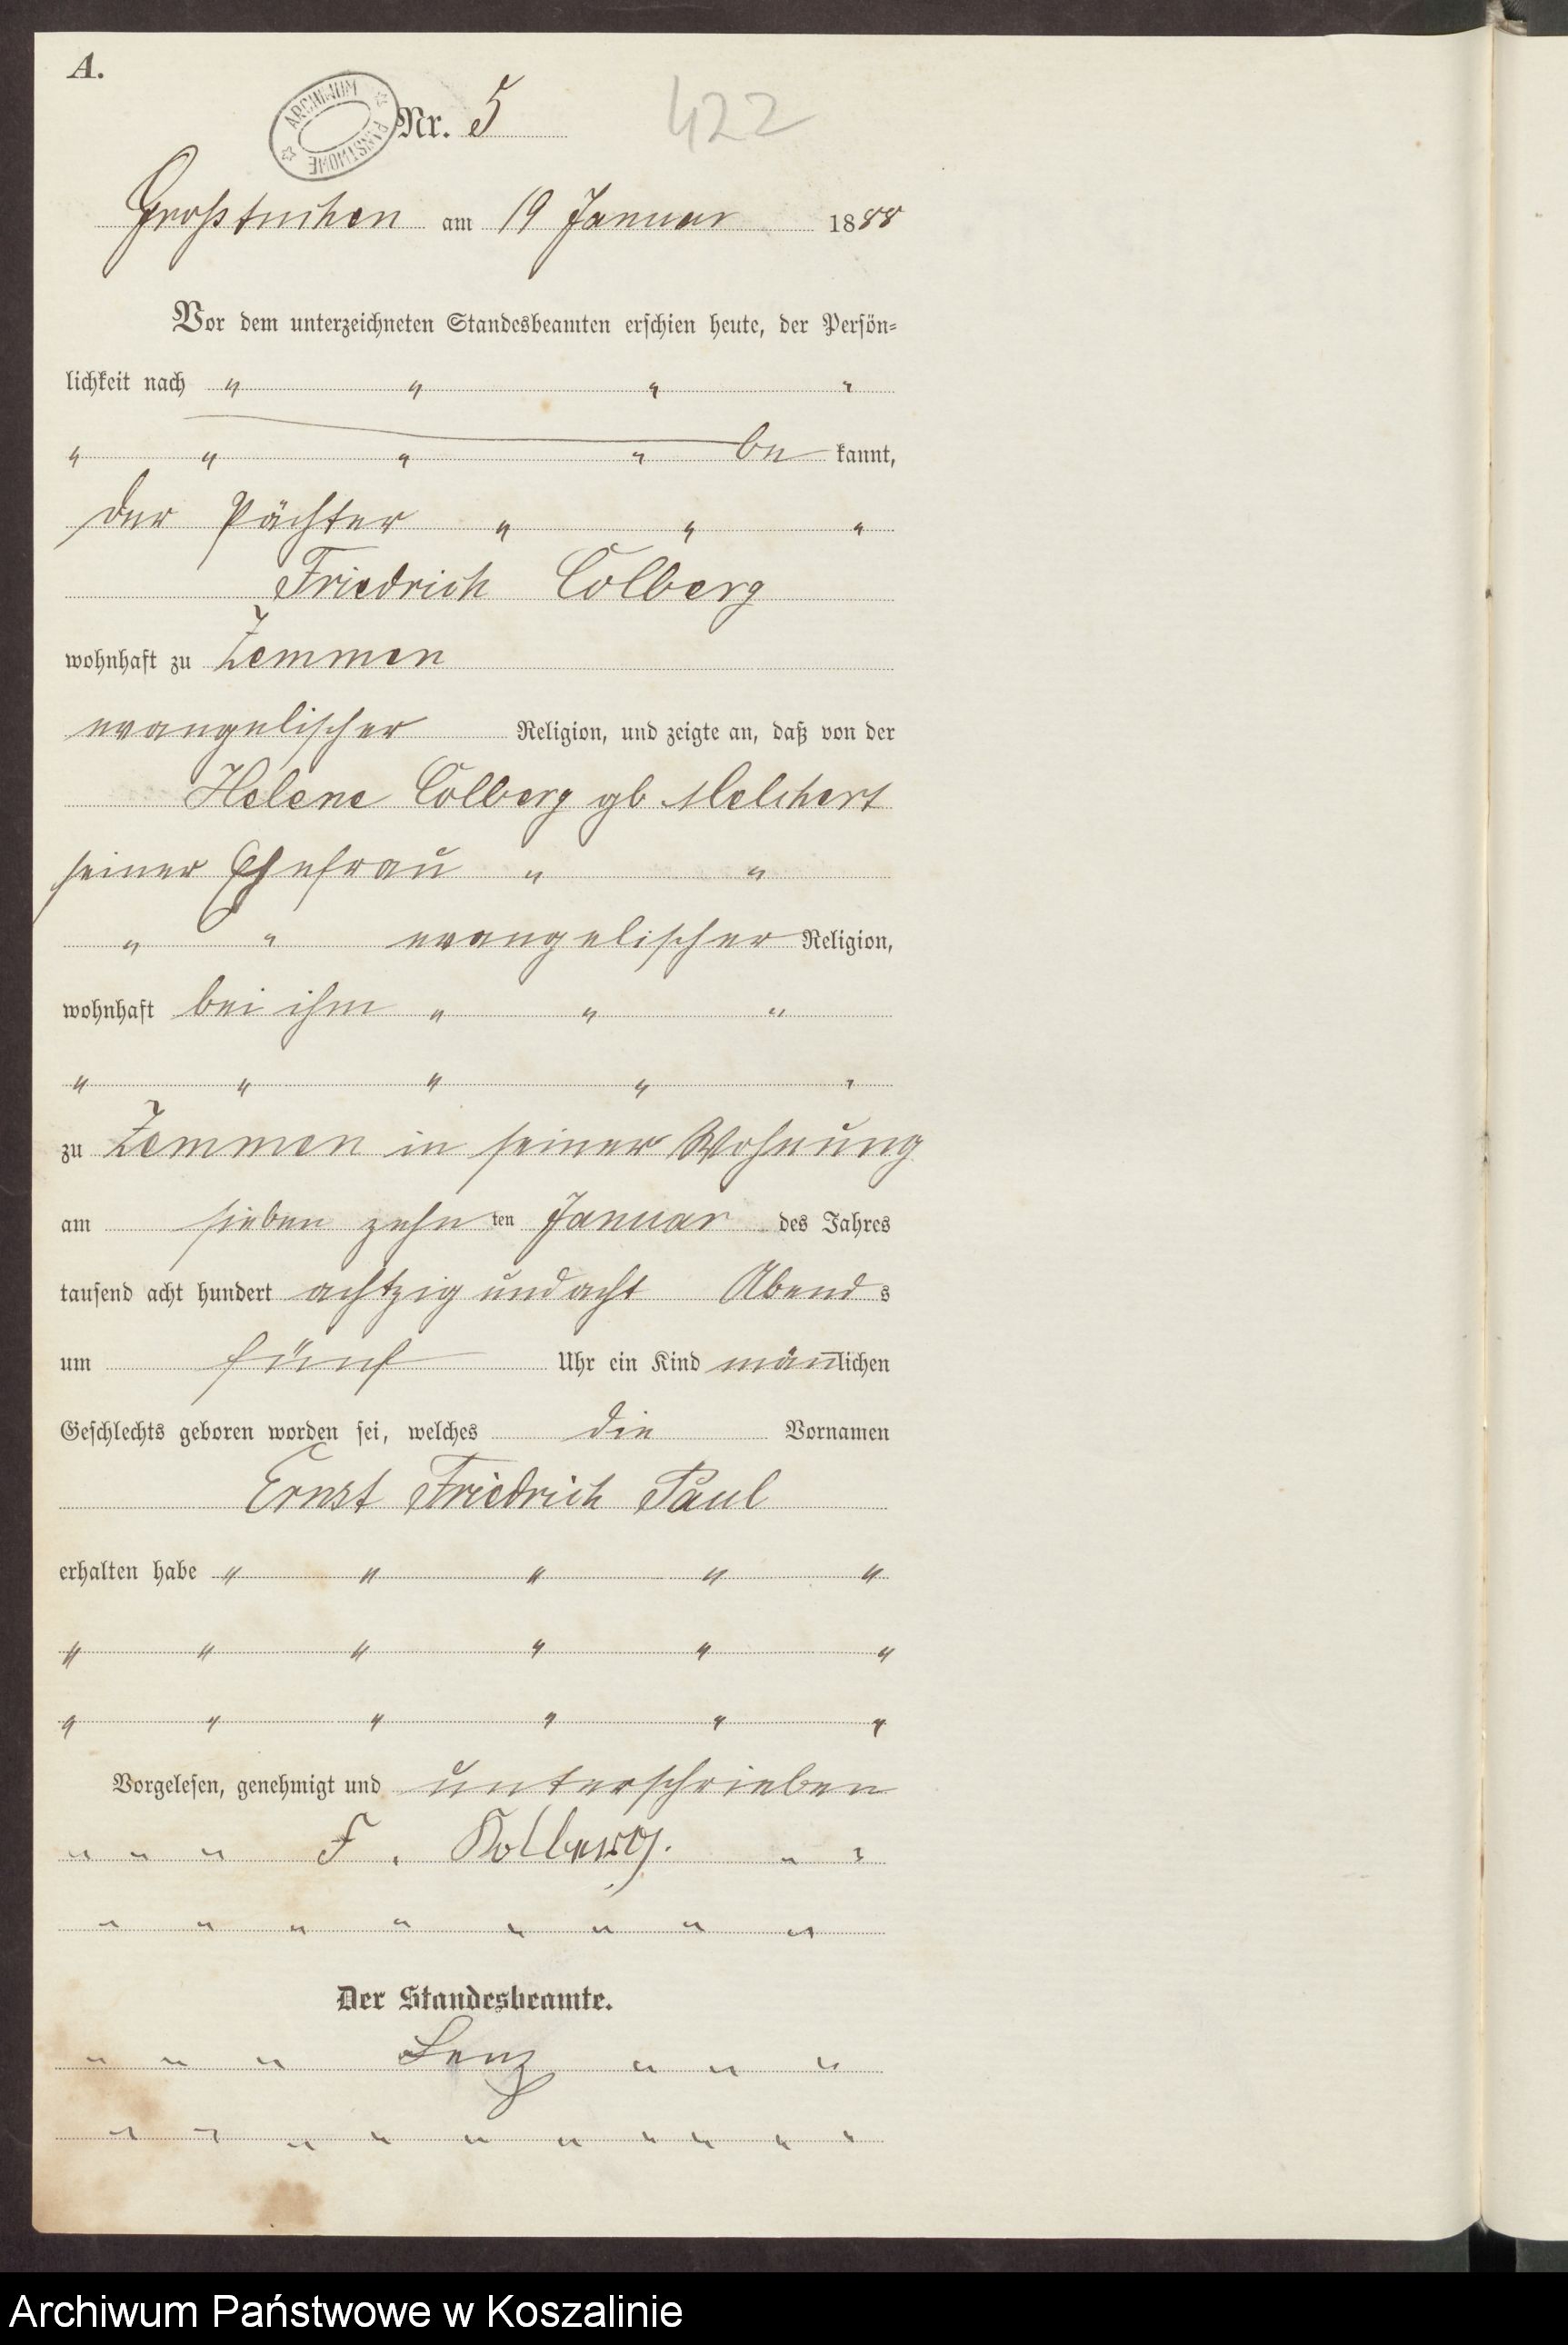 A.
ARCHIWUM PAŃSTWOWE
Nr. 5
422
Großtuchen am 19 Januar 1888
Vor dem unterzeichneten Standesbeamten erschien heute, der Persön=
lichkeit nach " " " "
" " " " be kannt,
der Pächter " " "
Friedrich Colberg
wohnhaft zu Zemmen
evangelischer Religion, und zeigte an, daß von der
Helene Colberg gb Melchert
seiner Ehefrau " "
" " evangelischer Religion,
wohnhaft bei ihm " " "
" " " " "
zu Zemmen in seiner Wohnung
am sieben zehn ten Januar des Jahres
tausend acht hundert achtzig und acht Abend s
um fünf Uhr ein Kind män̅lichen
Geschlechts geboren worden sei, welches die Vornamen
Ernst Friedrich Paul
erhalten habe " " " " "
" " " " " "
" " " " " "
Vorgelesen, genehmigt und unterschrieben
" " " F. Kolberg. " "
" " " " " " " "
Der Standesbeamte.
" " " Lenz " " "
" " " " " " " " " "
Archiwum Państwowe w Koszalinie